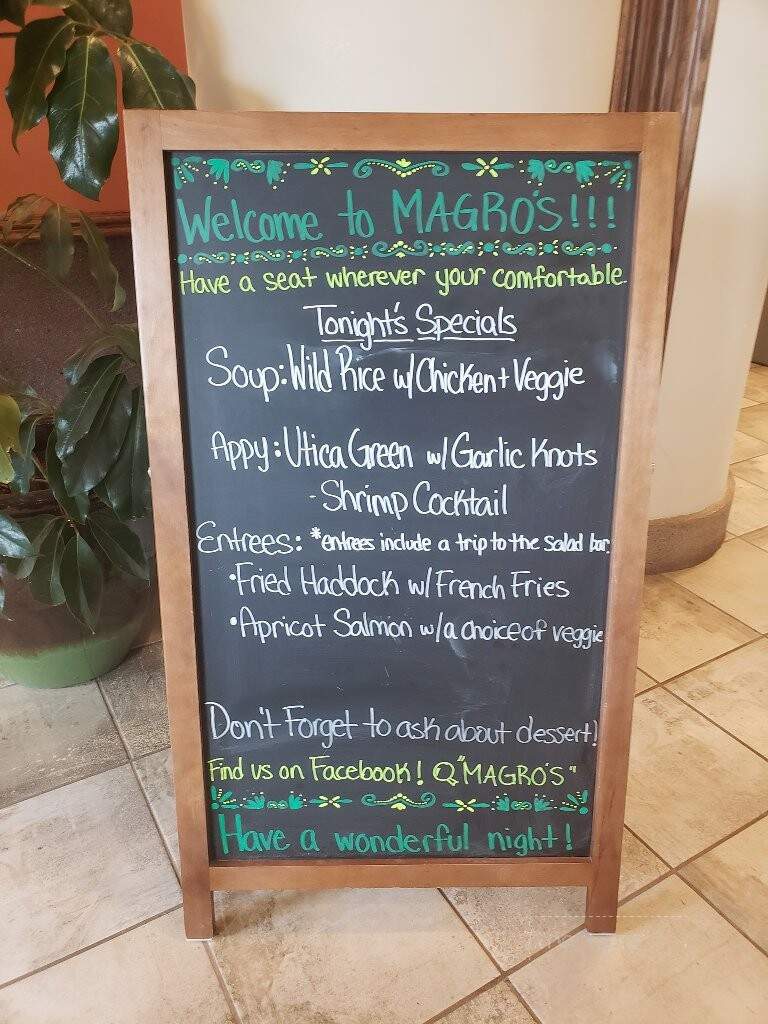 Welcome to MAGRO'S!!!
Have a seat wherever your comfortable.
Tonight's Specials
Soup: Wild Rice w/Chicken + Veggie
Appy: Utica Green w/Garlic Knots
- Shrimp Cocktail
Entrees: *entrees include a trip to the salad bar.
•Fried Haddock w/French Fries
•Apricot Salmon w/a choice of veggie
Don't Forget to ask about dessert!
Find us on Facebook! Q"MAGRO'S"
Have a wonderful night!